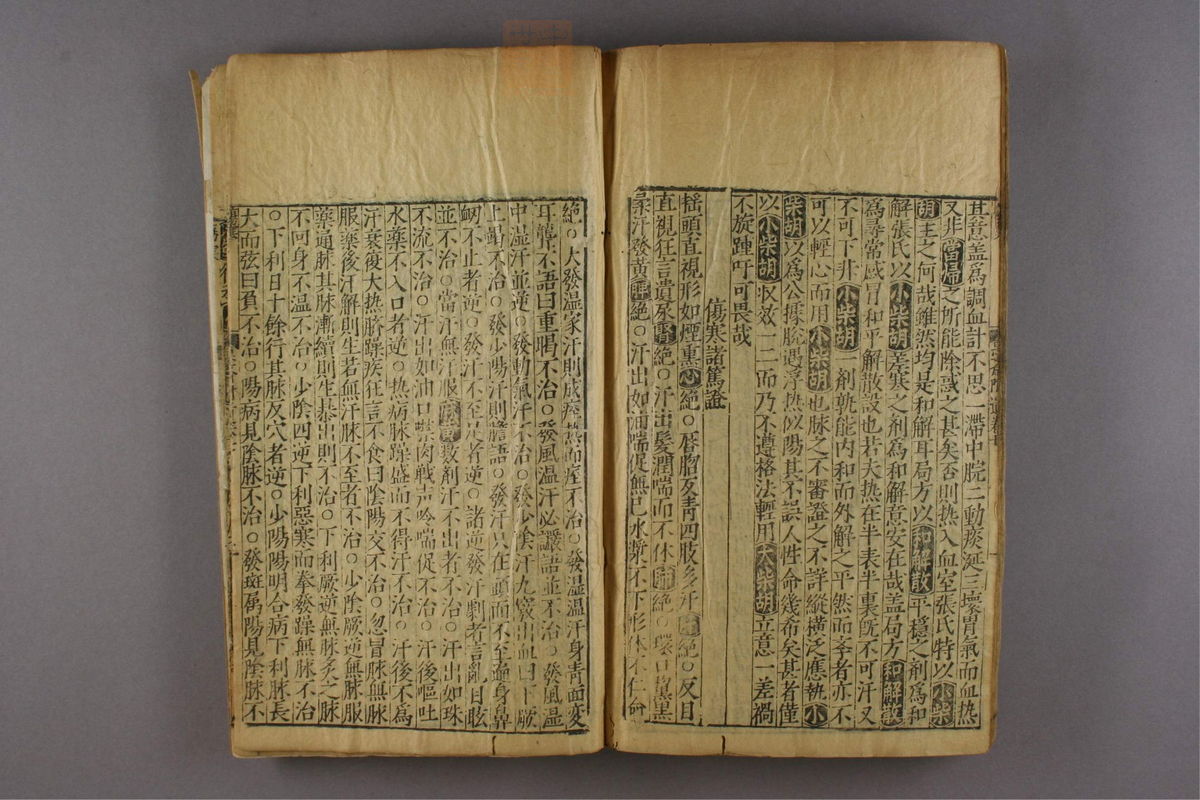 其意盖爲調血計不思一滯中脘二動痰涎三壞胃氣而血热
又非當歸之所能除惑之甚矣否則热入血室張氏特以小柴
胡主之何哉雖然均是和解耳局方以和解散平穩之剤爲和
解張氏以小柴胡差寒之剤爲和解意安在哉盖局方和解散
爲尋常感冒和平解散設也若大热在半表半裏旣不可汗又
不可下非小柴胡一剤孰能内和而外解之平然而李者亦不
可以輕心而用小柴胡也脉之不審證之不詳縱横泛應執小
柴胡以爲公據脱遇浮热似陽其不誤人性命幾希矣甚者僅
以小柴胡收效一二而乃不遵格法輕用大柴胡立意一差禍
不旋踵吁可畏哉
傷寒諸篤證
揺頭直視形如煙熏心絶○唇胎反青四肢多汗 絶○反目
直視狂言遺尿腎絶○汗出髮潤喘而不休肺絶○環口黧黒
柔汗發黃脾絶○汗出如油喘促無已水漿不下形体不仁命
絶○大發温家汗則成痙热而痓不治○發湿温汗身青面変
耳聾不語曰重暍不治○發風温汗必讝語並不治○發風温
中湿汗並逆○發動氣汗不治○發少陰汗九竅出血曰下厥
上竭不治○發少陽汗則譫語○發汗只在頭面不至遍身鼻
衂不止者逆○發汗不至足者逆○諸逆發汗劇者言亂目眩
並不治○當汗無汗服麻黄数剤汗不出者不治○汗出如珠
不流不治○汗出如油口噤肉戦声吟喘促不治○汗後嘔吐
水藥不入口者逆○热病脉躁盛而不得汗不治○汗後不爲
汗衰復大热脉躁疾狂言不食曰陰陽交不治○忽冒脉無脉
服藥後汗解則生若無汗脉不至者不治○少陰厥逆無脉服
藥通脉其脉漸續則生暴出則不治○下利厥逆無脉灸之脉
不回身不温不治○少陰四逆下利惡寒而拳發躁無脉不治
○下利日十餘行其脉反穴者逆○少陽陽明合病下利脉長
大而弦曰負不治○陽病見陰脉不治○發斑属陽見陰脉不